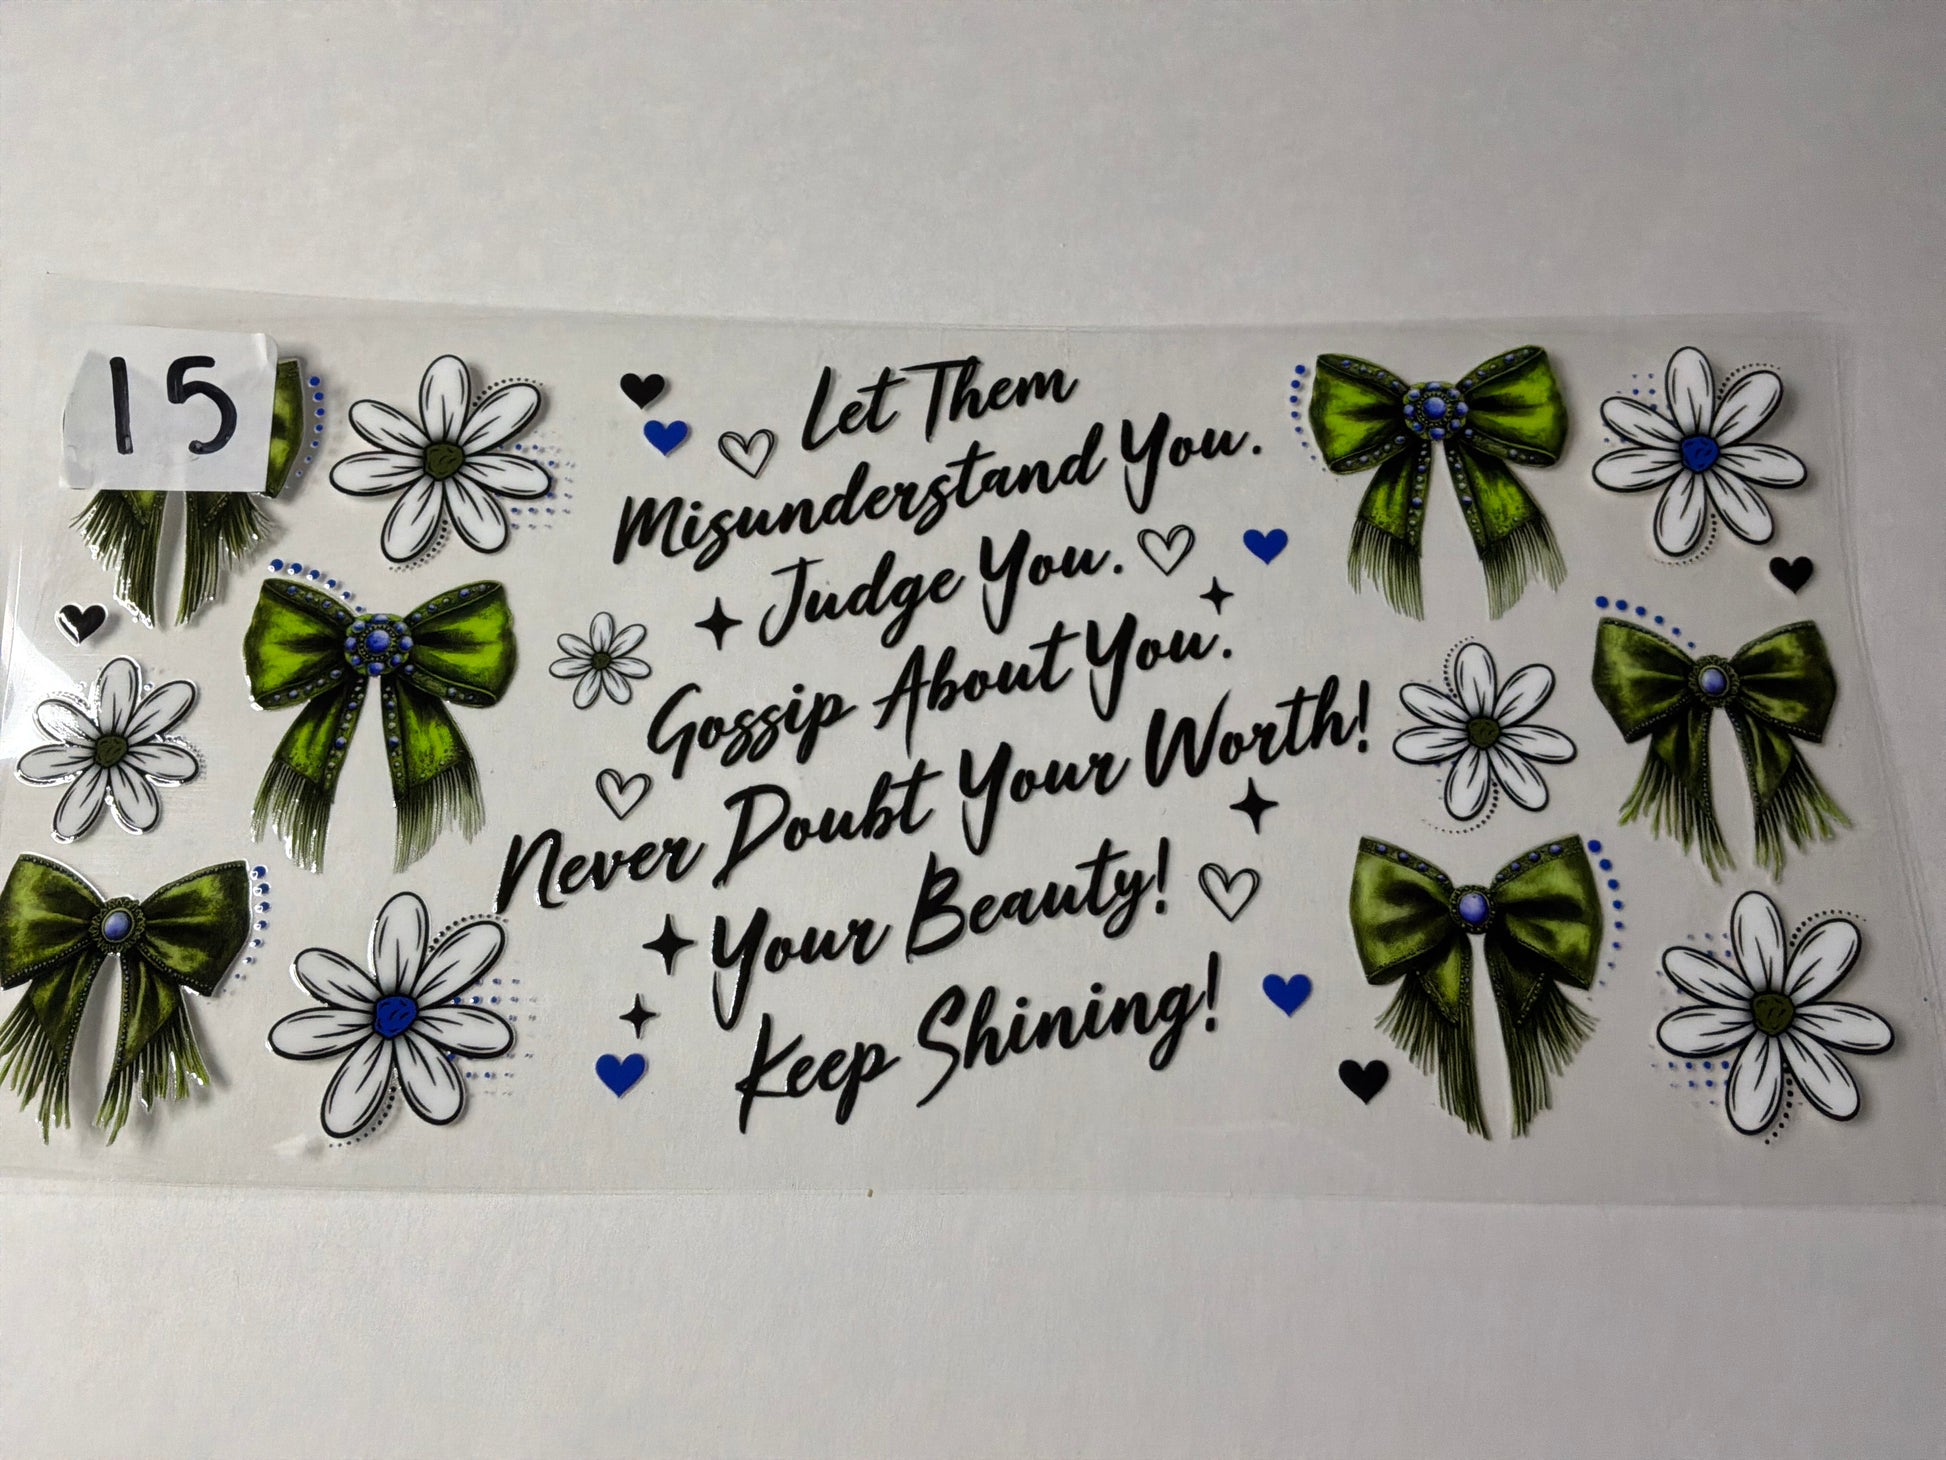 15
Let Them
Misunderstand You.
Judge You.
Gossip About You.
Never Doubt Your Worth!
Your Beauty!
Keep Shining!